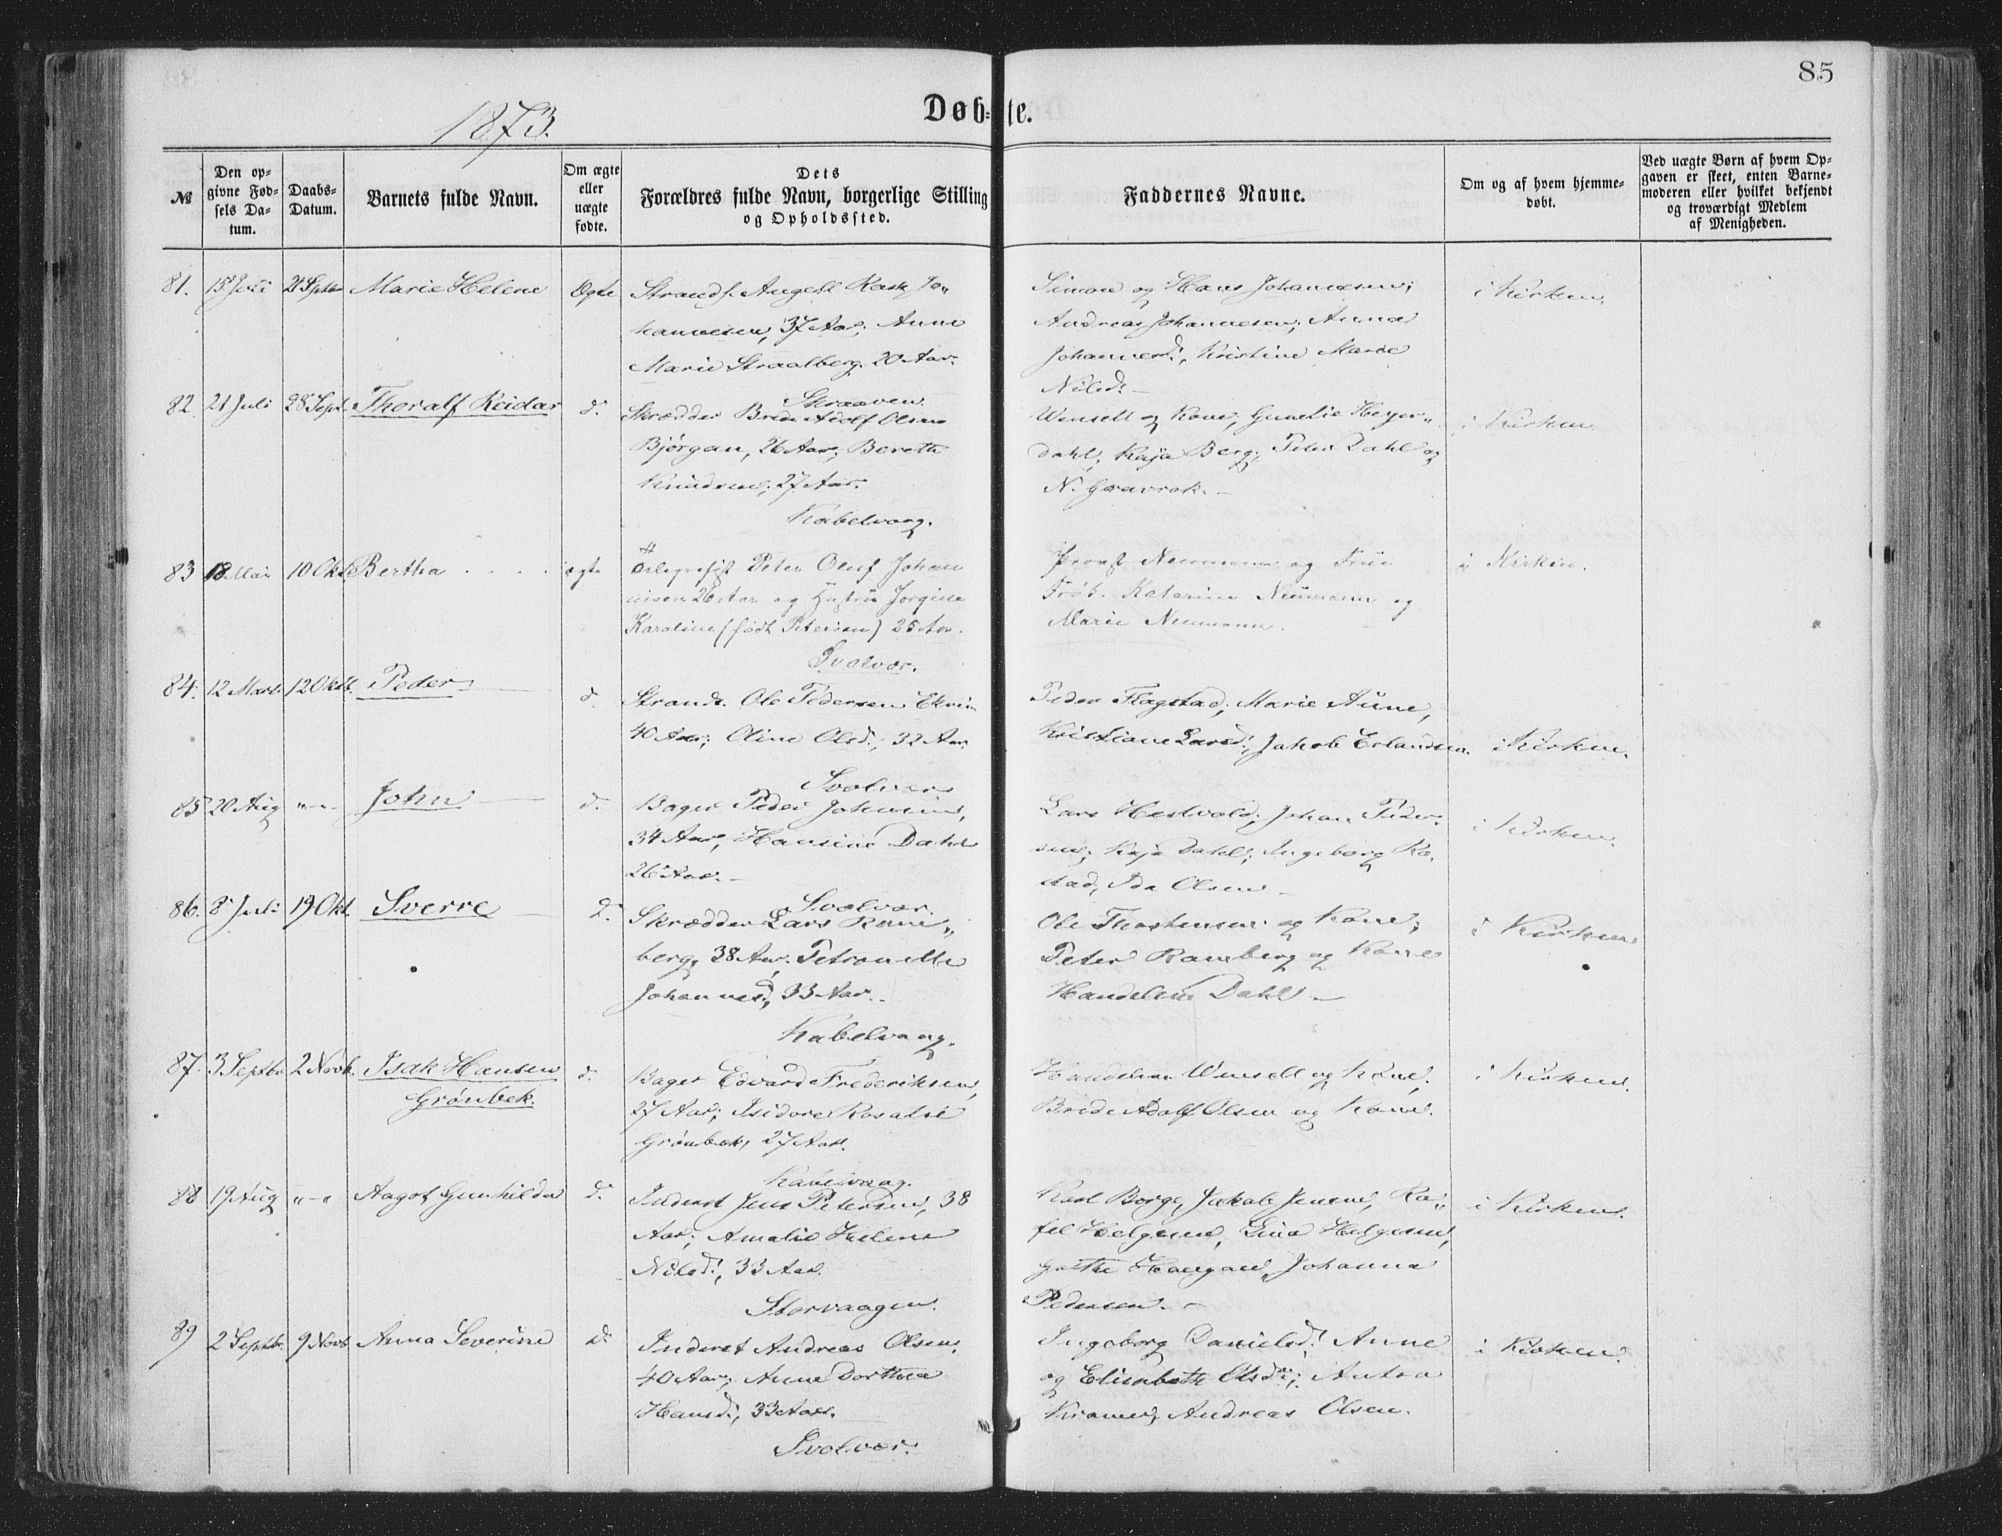 85
1873.
Døb-te.
№
Den op-
givne Fød-
sels Da-
tum.
Daabs-
Datum.
Barnets fulde Navn.
Om ægte
eller
uægte
fødte.
Dets
Forældres fulde Navn, borgerlige Stilling
og Opholdssted.
Faddernes Navne.
Om og af hvem hjemme-
døbt.
Ved uægte Børn af hvem Op-
gaven er skeet, enten Barne-
moderen eller hvilket bekjendt
og troværdigt Medlem
af Menigheden.
81. 15 Juli 21 Septbr Marie Helene Ægte
Strands. Angell Rask Jo„
hannesen, 37 Aar, Anne
Marie Straalberg 20 Aar.
Skraaven.
Simon og Hans Johannesen;
Andreas Johannesen, Anna
Johannesd., Kristine Marie
Nilsd. —
i Kirken.
82. 21 Juli 28 Sept. Thoralf Reidar d.
Skrædder Brede Adolf Olsen
Bjørgan, 26 Aar, Bereth
Knudsen, 27 Aar.
Kabelvaag.
Wensell og Kone, Gunelie Heyer„
dahl, Kaja Berg, Peter Dahl og
N. Gravrok. —
i Kirken
83 18 Mai 10 Okt Bertha . . . . ægte
Telegrafist Peter Oluf Johan
nisen 26 Aar og Hustru Jorgine
Karoline (født Petersen) 25 Aar.
Svolvær.
Provst Neumann og Frue
Frøk. Katarine Neumann og
Marie Neumann.
i Kirken.
84. 12 Marts 12 Oktb. Peder d.
Strands. Ole Pedersen
40 Aar; Oline Olsd., 32 Aar
Svolvær
Peder Flagstad, Marie Aune,
Kristiane Larsd., Jakob Erlandsen.
i Kirken.
85 20 Aug "-"- John — d.
Bager Peder Johnsen,
34 Aar, Hansine Dahl
26 Aar. —
Svolvær.
Lars Hestvold, Johan Peder-
sen; Kaja Dahl; Ingeborg Ro-
stad, Ida Olsen —
i Kirken.
86. 8 Juli 19 Okt. Sverre — d.
Skrædder Lars Rane„
berg, 38 Aar. Petronelle
Johannesd., 33 Aar.
Kabelvaag.
Ole Thostensen og Kone;
Peter Ramberg og Kone
Handelsm Dahl —
i Kirken
87. 3 Septbr 2 Novb. Isak Hansen
Grønbek. d.
Bager Edvard Frederiksen,
27 Aar; Isidore Rosalie
Grønbek, 27 Aar.
Handelsm Wensell og Kone,
Brede Adolf Olsen og Kone.
i Kirken.
88 19 Aug "-" Aagot Gunhilda d.
Inderst Jens Petersen, 38
Aar; Amalie Helene
Nilsd., 33 Aar.
Storvaagen.
Karl Borge, Jakob Jensen, Ra„
fel Helgesen, Lina Helgesen,
Johanna
Pedersen. —
i Kirken.
89 2 Septbr. 9 Novb Anna Severine d.
Inderst Andreas Olsen,
40 Aar, Anne Dorthea
Hansd., 33 Aar.
Svolvær.
Ingeborg Danielsd., Anne
og Elisabeth Olsdr; Anton
Kramer, Andreas Olsen.
i Kirken.